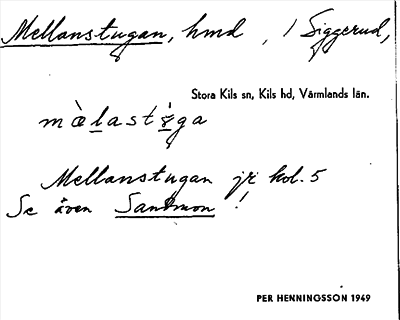 Mellanstugan, hmd , i Siggerud,
Stora Kils sn, Kils hd, Värmlands län.
Mellanstugan jr kol. 5
Se även Sandmon !
PER HENNINGSSON 1949